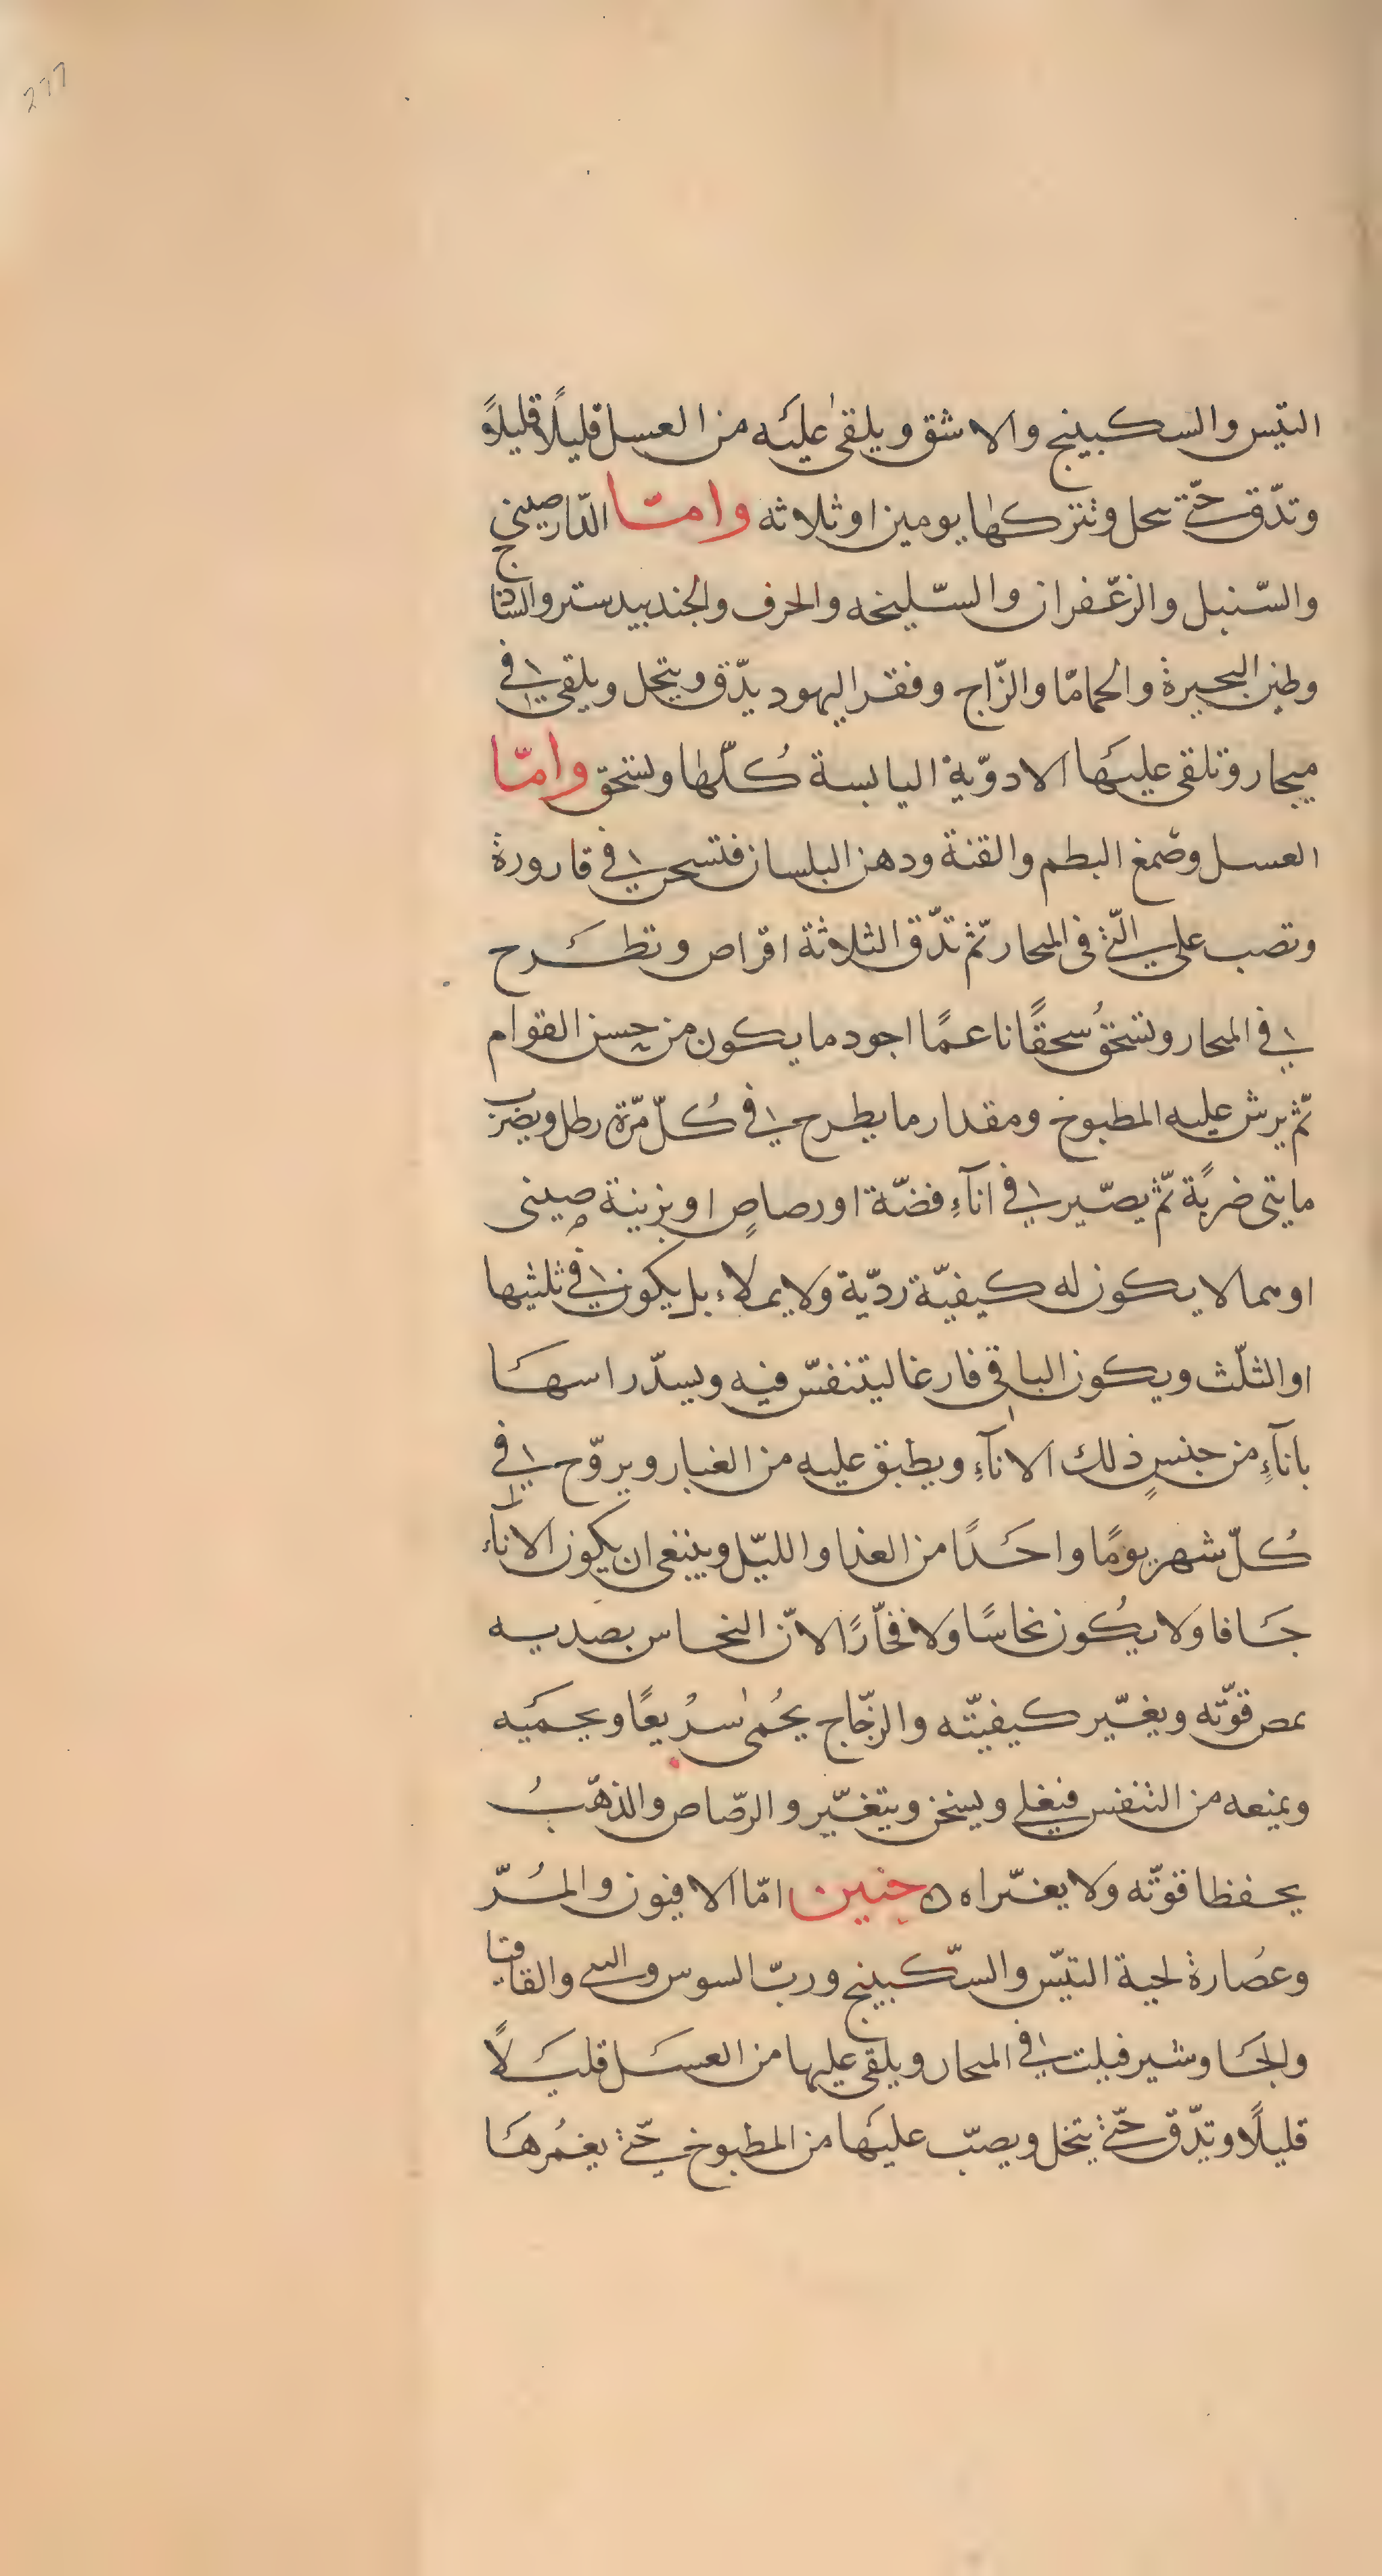 277
التيّس والسكبينج والاشق ويلقى عليَه من العسل قليلًا قليلاً
وتدّق حتّى تنحل وتتركها يومين او ثلاثه وامّا الدّارصيني
والسّنبل والزعّفران والسّليخه والحرف والجندبيدستر والساذج
وطين البحيرة والحماما والزّاج وفقر اليهود يدّق وينخل ويلقى في
ميجار وتلقى عليهَا الادوّية اليابسة كُلّها وتسحق وامّا
العسل وصَمغ البطم والقنة ودهن البلسان فتسحن في قارورة
وتصب على الّتي في الميجار ثمّ تدّق الثلاثة اقراص وتطرَح
في الميجار وتسحقُ سحقًا ناعمًا اجود ما يكون من حسن القوام
ثمّ يرش عليه المطبوخ ومقدار ما يطرح في كُلّ مرّة رطل ويضرب
مايتى ضربًة ثمّ يصّير في انآءِ فضّة او رصاصٍ او بزنية صينى
او مما لا يكون له كيفيّة رديّة ولا يملاء بل يكون في ثلثيها
او الثلّث ويكون الباقي فارغا ليتنفسّ فيه ويسدّ راسهَا
بانآءِ من جنسٍ ذلك الانآءِ ويطبق عليه من الغبار ويروّح في
كُلّ شهر يومًا واحَدًا من الغذا والليّل وينبغى ان يكون الانآء
جَافا وَلا يكُون نحاسًا وَلا فخّارًا لانّ النحاس بصديه
يمص قوّته ويغيّر كيفيتّه والزجّاج يحُمٰى سرُيعًا ويحميَه
ويمنعه من التنفس فيغلى ويسخن ويتغيّر والرصّاص والذهّبُ
يحفظا قوّته ولا يغيّراه ه حنين امّا الافيون والمُرّ
وعصُارة لحية التيّس والسّكبينج وربّ السوس والقاقيا
والجَاوشير فيلت في الميجار ويلقى عليها من العسَل قليَلًا
قليلًا وتدّق حتّى ينخل ويصبّ عليهَا من المطبوخ حتّى يغمُرهَا